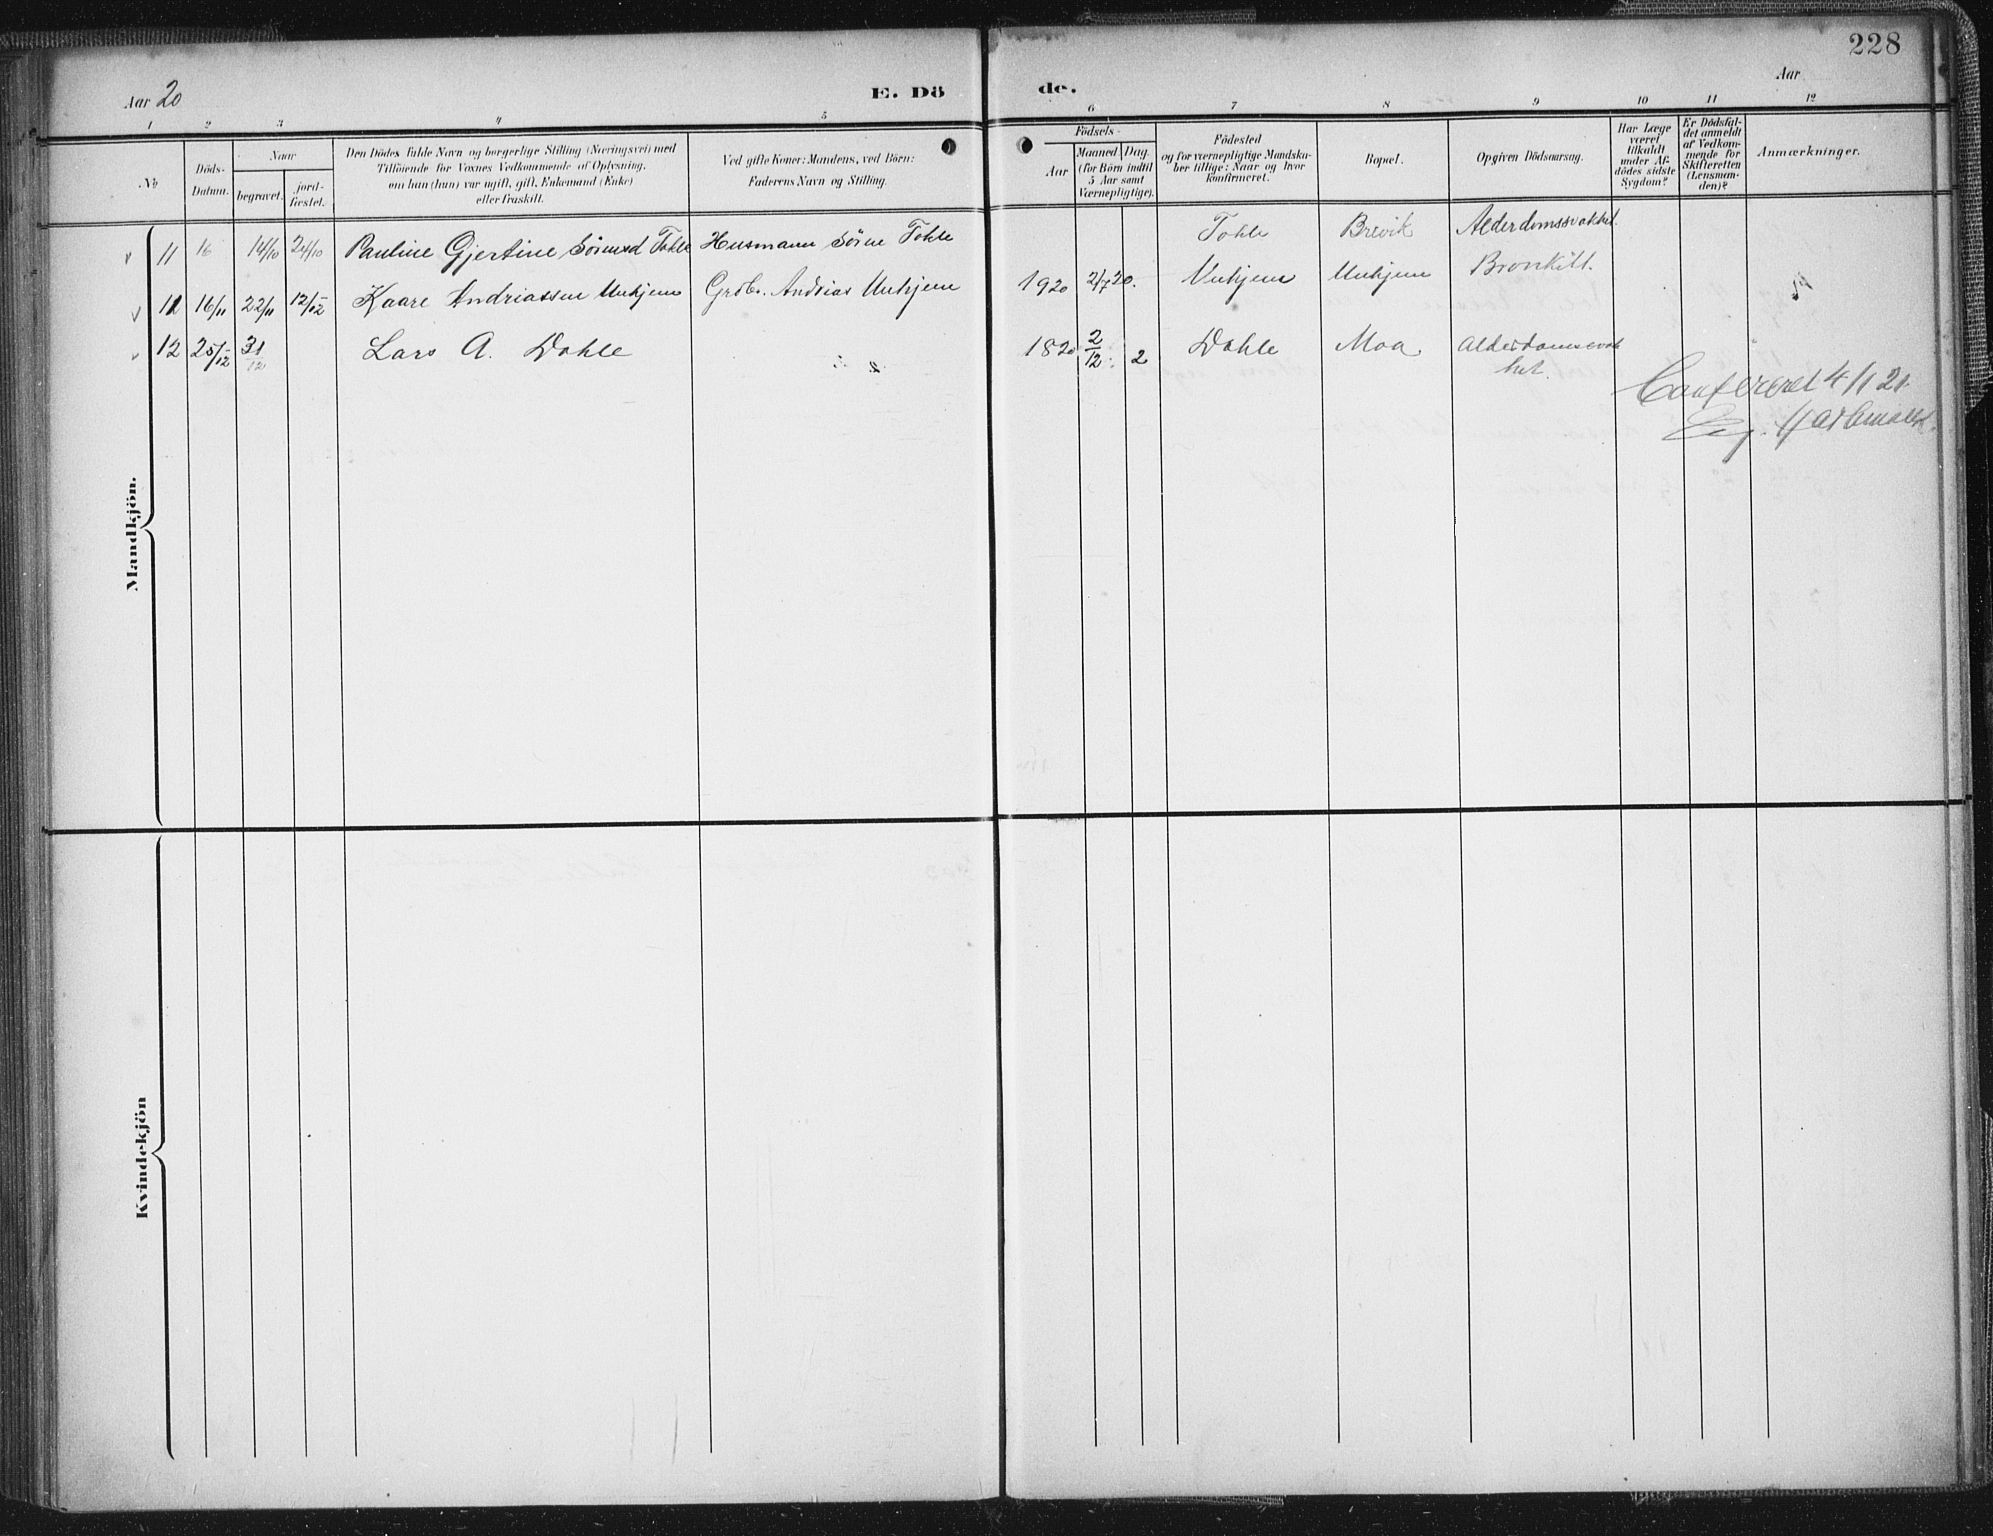 228
Aar 20
E. Dö
de.
Aar
1 2 3 4 5 6 7 8 9 10 11 12
No
Döds-
Datum.
Naar
begravet.
jord-
fæstet.
Den Dödes fulde Navn og borgerlige Stilling (Næringsvei) med
Tilföiende for Voxnes Vedkommende af Oplysning,
om han (hun) var ugift, gift, Enkemand (Enke)
eller fraskilt.
Ved gifte Koner: Mandens, ved Börn:
Faderens Navn og Stilling.
Födsels-
Aar
Maaned
Dag
(for Börn indtil
5 Aar samt
Værnepligtige).
Födested
og for værnepligtige Mandska-
ber tillige: Naar og hvor
konfirmeret.
Bopæl.
Opgiven Dödsaarsag.
Har Læge
været
tilkaldt
under Af-
dödes sidste
Sygdom?
Er Dödsfal-
det anmeldt
af Vedkom-
mende for
Skifteretten
(Lensman-
den)?
Anmærkninger.
11 16 14/10 24/10 Pauline Gjertine Sörensd Tokle Husmann Sörne Tokle Tokle Brevik Alderdomssvakhet.
11 16/11 22/11 12/12 Kaare Andriassen Unhjem Grdbr. Andrias Unhjem 1920 2/7 20. Unhjem Unhjem Bronkitt.
12 25/12 31/12 Lars A. Dahle 1820 2/12 2 Dahle Moa Alderdomssvak
het.
Confereret 4/1 21.
Mandkjön.
Kvindekjön